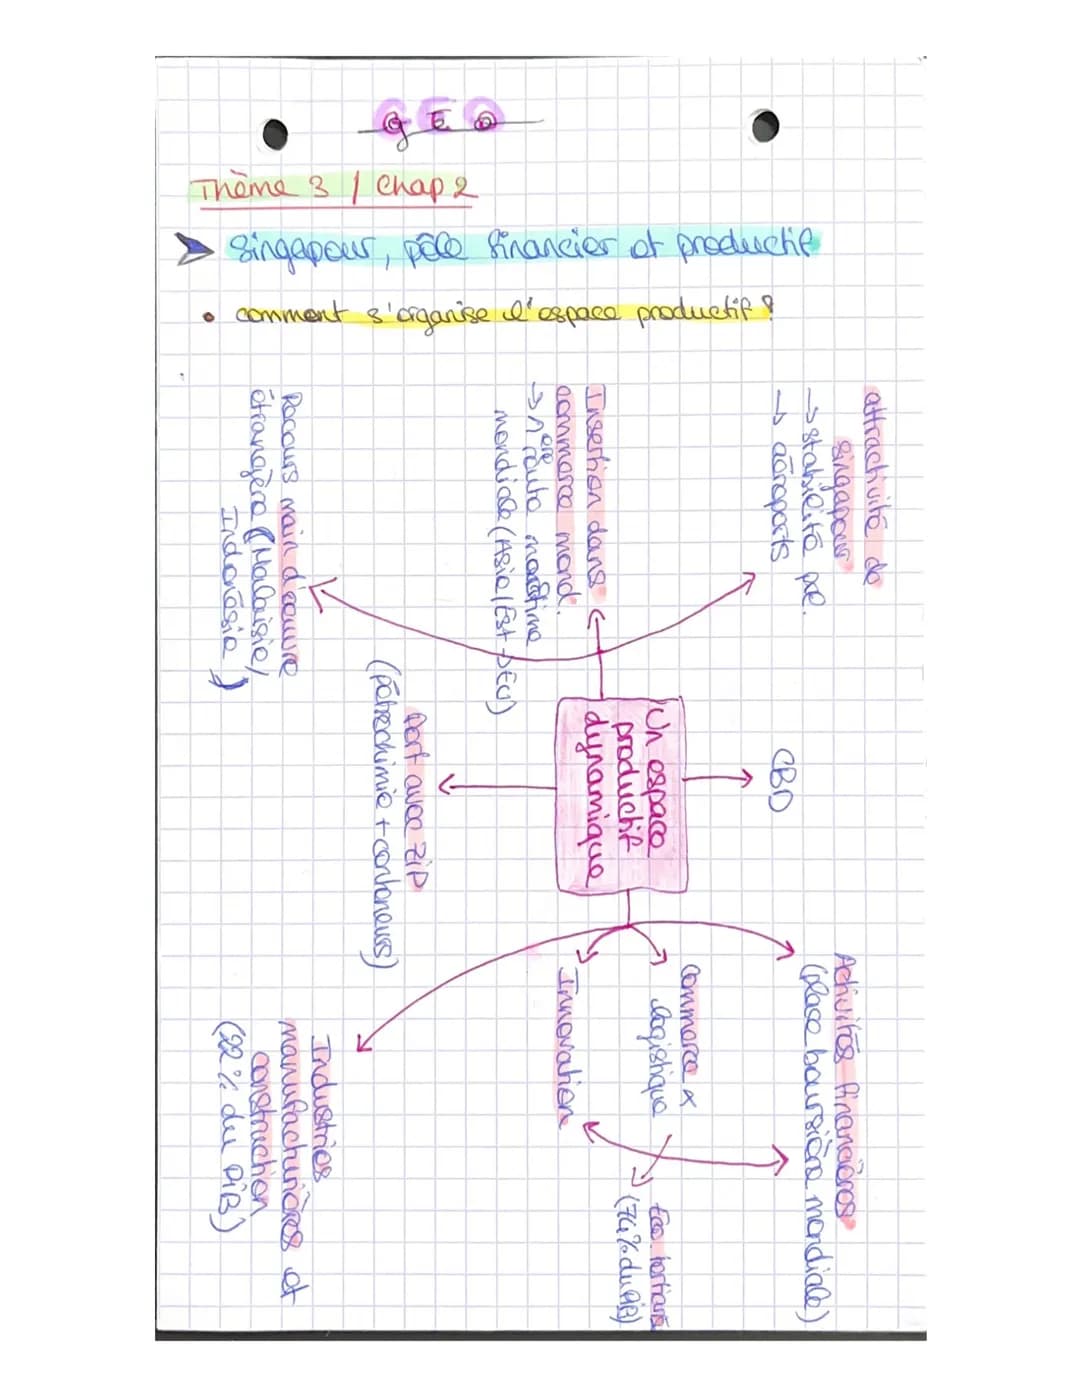 GEO
Thème 3 / Chap 2
Singapour, pôle financier et productif
• comment s'organise l'espace productif ?
attractivité de
singapour
→ stabilité pol.
→ aéroports
Insertion dans
commerce mond.
→ 1ère route maritime
mondiale (Asie/Est → EU)
Recours main d'œuvre
étrangère (Malaisie/
Indonésie)
CBD
Un espace
productif
dynamique
Port avec ZIP
(pétrochimie + conteneurs)
Activités financières
(place boursière mondiale)
commerce &
logistique
Innovation
Eco. tertiaire
(74% du PIB)
Industries
manufacturières et
construction
(22% du PIB)